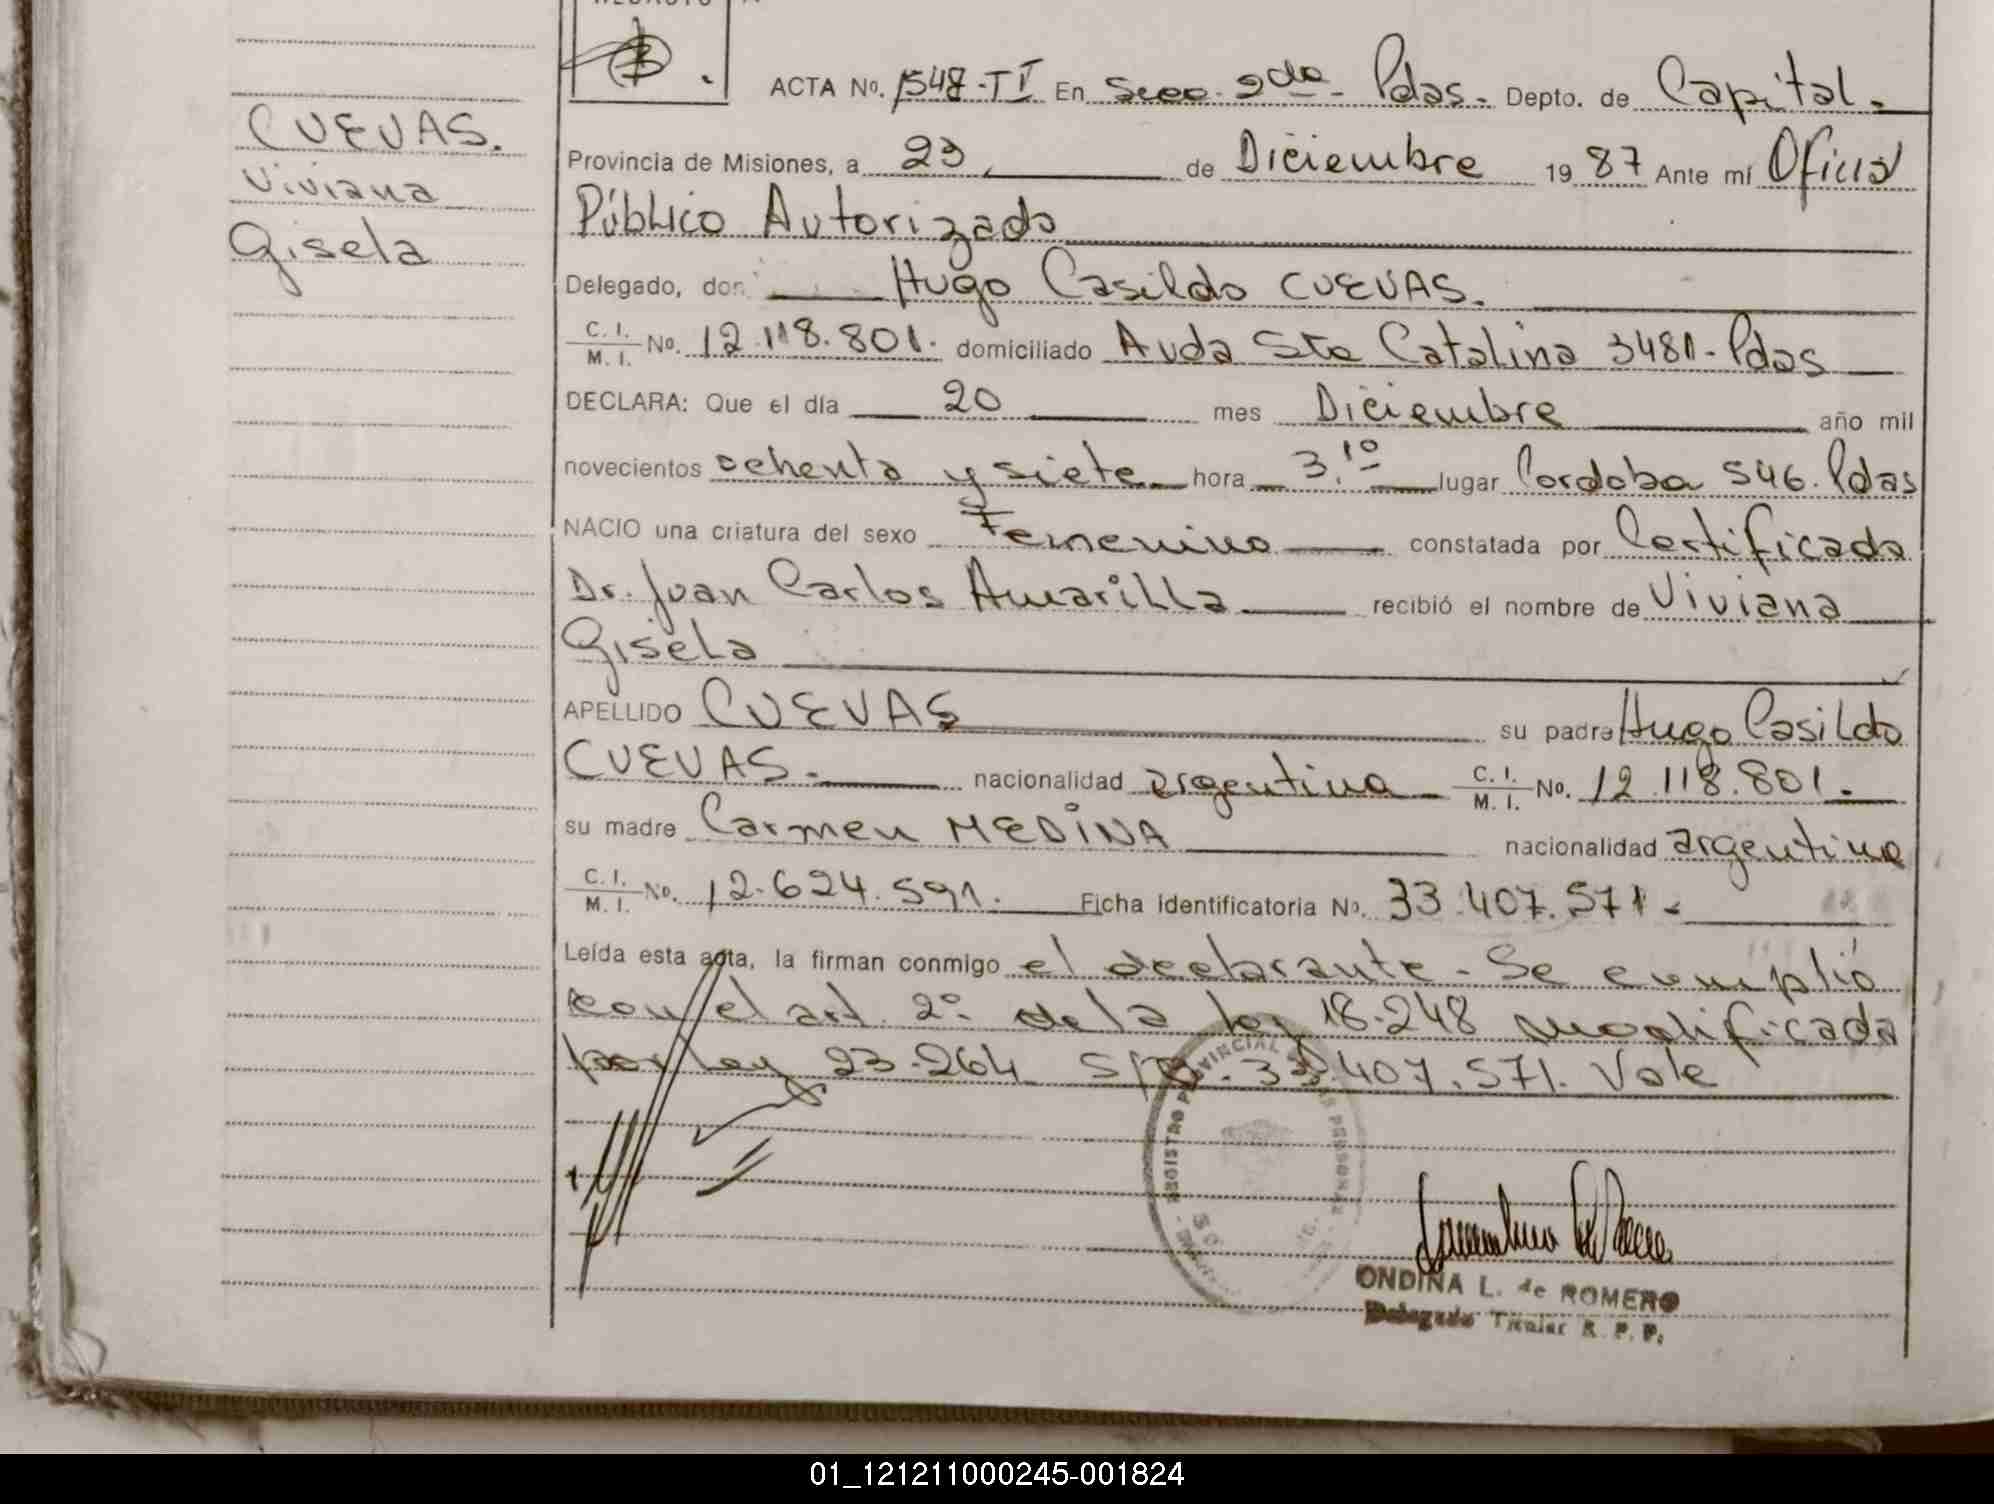 CUEVAS.
Viviana
Gisela
ACTA No. 1548-TI En Secc. 2da - Pdas. Depto. de Capital.
Provincia de Misiones, a 23 de Diciembre 1987 Ante mí Oficial
Público Autorizado
Delegado, don Hugo Casildo CUEVAS.
C. I. / M. I. No. 12.118.801. domiciliado Avda Sta Catalina 3481-Pdas
DECLARA: Que el día 20 mes Diciembre año mil
novecientos ochenta y siete hora 3,10 lugar Cordoba 546. Pdas
NACIO una criatura del sexo Femenino constatada por Certificado
Dr. Juan Carlos Amarilla recibió el nombre de Viviana
Gisela
APELLIDO CUEVAS su padre Hugo Casildo
CUEVAS.- nacionalidad argentina C. I. / M. I. No. 12.118.801.
su madre Carmen MEDINA nacionalidad argentina
C. I. / M. I. No. 12.624.591. Ficha identificatoria No. 33.407.571.-
Leída esta acta, la firman conmigo el declarante. Se cumplió
con el art. 2° de la ley 18.248 modificada
por ley 23.264 33.407.571. Vale
REGISTRO PROVINCIAL PERSONAS
ONDINA L. de ROMERO
Delegado Titular R. P. P.
01_121211000245-001824